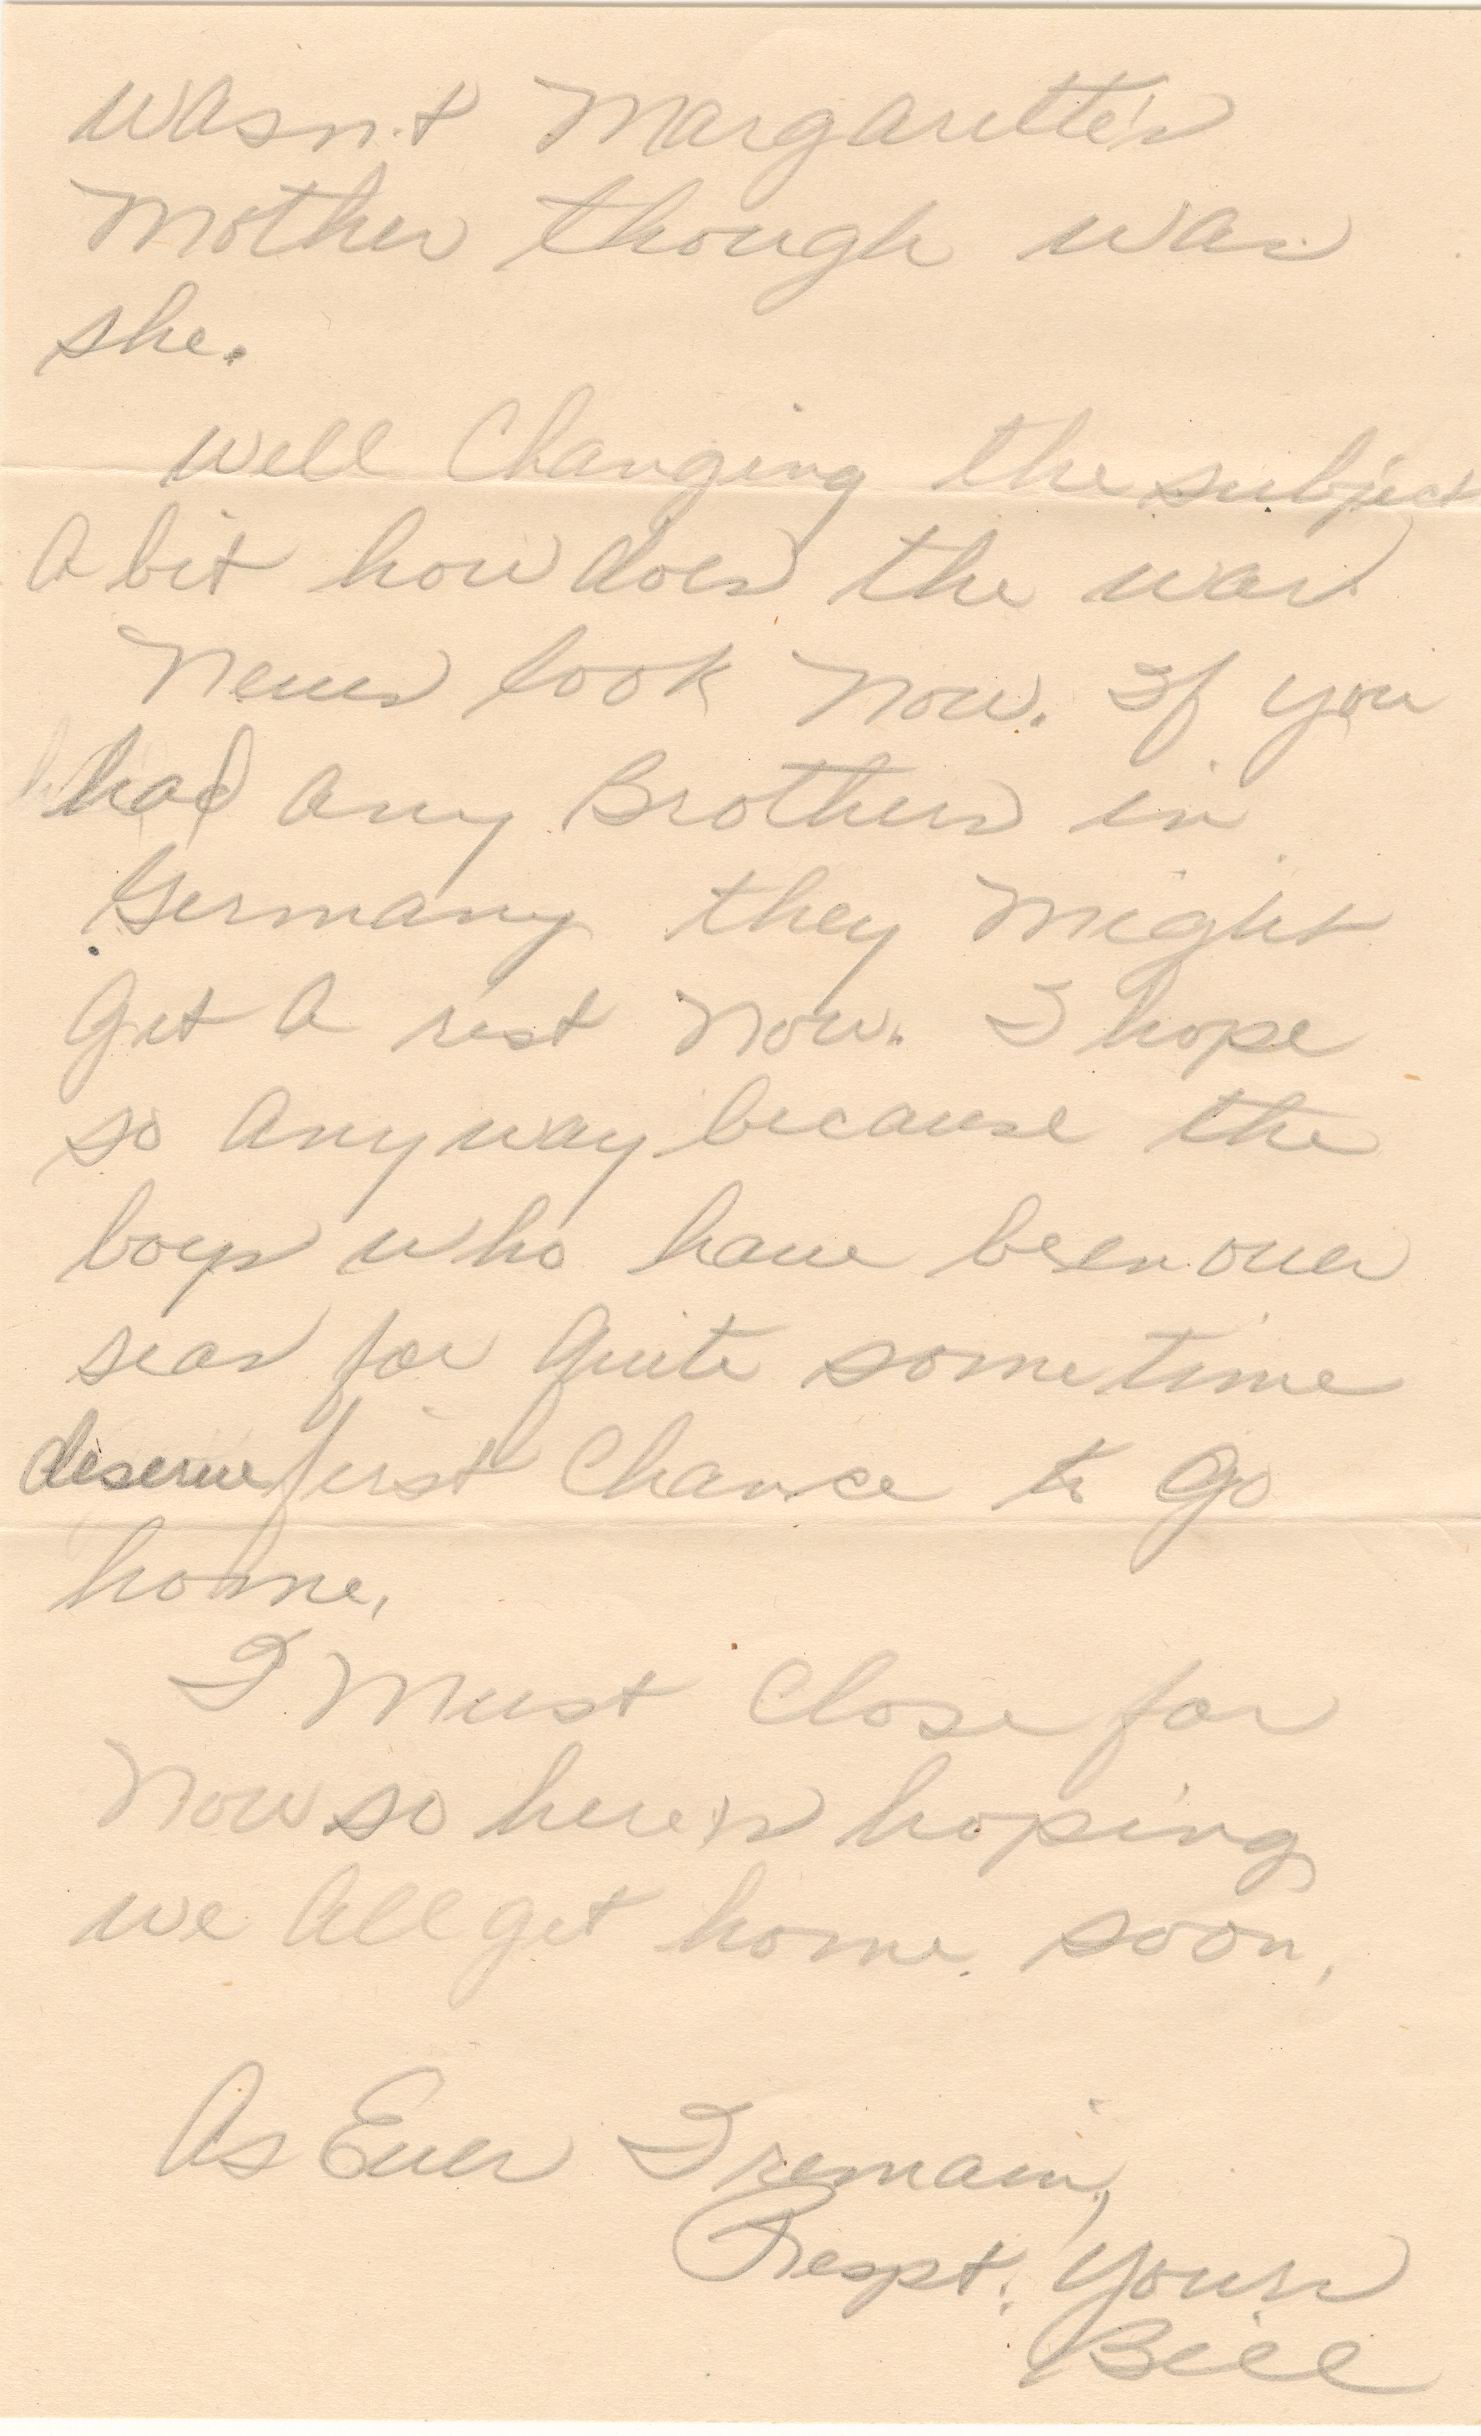 wasn't Margarette's
Mother though was
she.
well Changing the subject
a bit how does the war
News look Now. If you
had any Brothers in
Germany they Might
Get a rest Now. I hope
so anyway because the
boys who have been over
seas for quite sometime
deserve first Chance to go
home,
I Must Close for
Now so here's hoping
we all get home soon,
As Ever I remain,
Respt. Yours
Bill